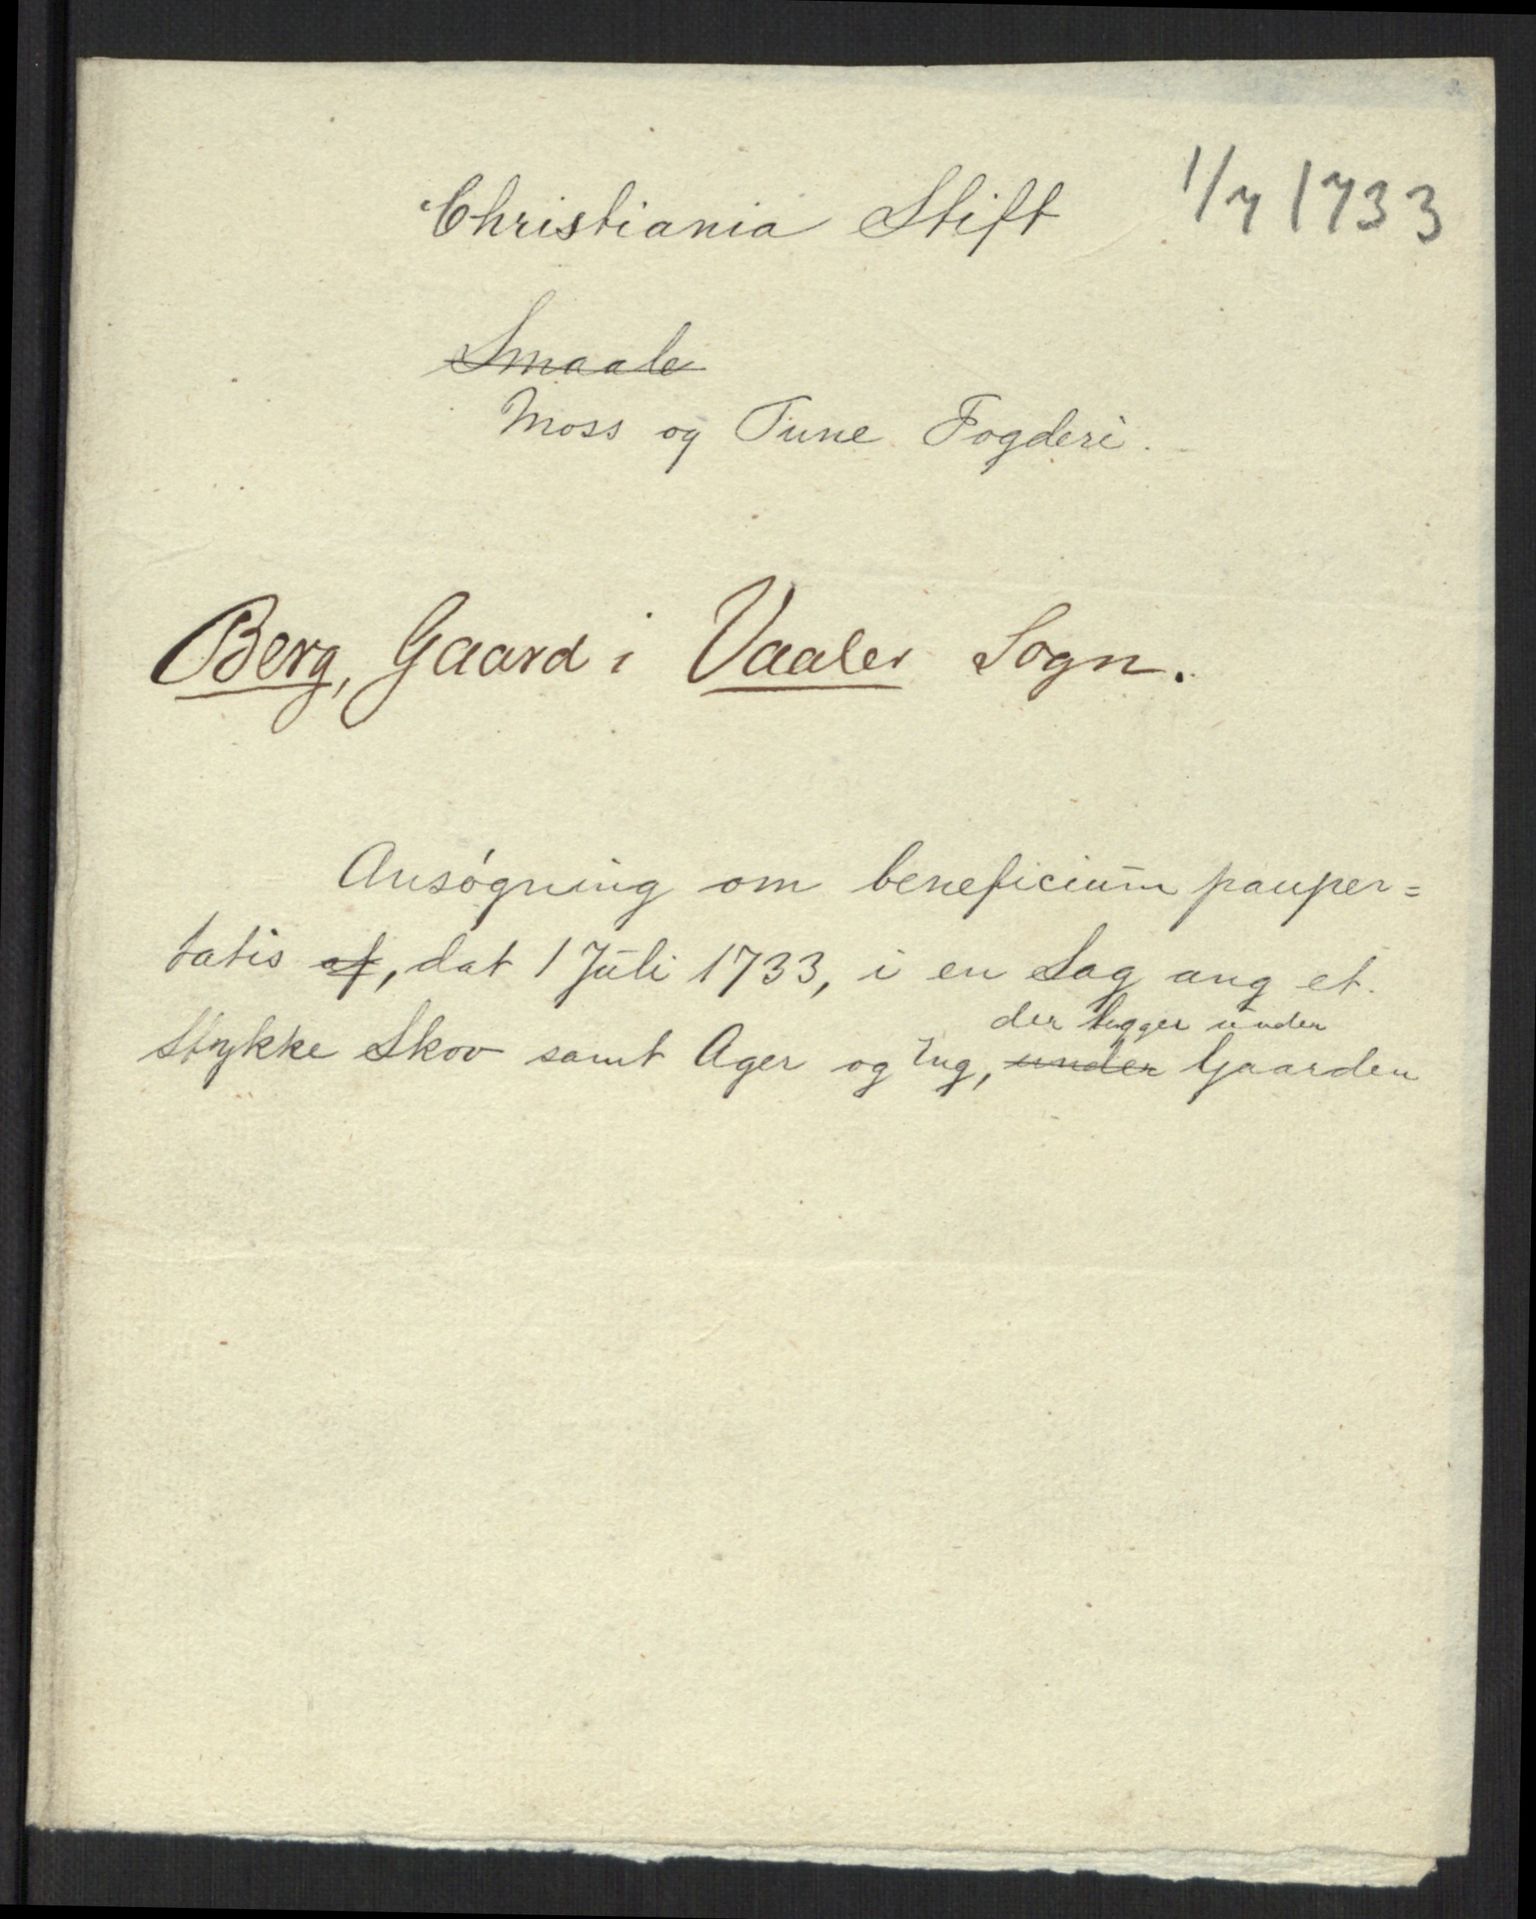 Christiania Stift 1/7 1733
Smaale
Moss og Tune Fogderi.
Berg, Gaard i Vaaler Sogn.
Ansøgning om beneficium pauper=
tatis af, dat 1 Juli 1733, i en Sag ang et
der ligger under
Stykke Skov samt Ager og Eng, under Gaarden